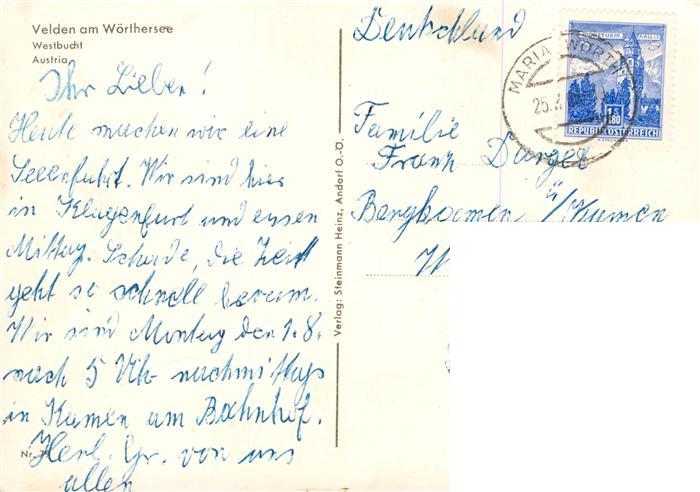 Velden am Wörthersee
Westbucht
Austria
Ihr Lieben!
Heute machen wir eine
Seeenfahrt. Wir sind hier
in Klagenfurt und essen
Mittag. Schade, die Zeit
geht so schnell herum.
Wir sind Montag den 1.8.
nach 5 Uhr nachmittags
in Kamen am Bahnhof.
Herl. Gr. von uns
allen
Nr.
Verlag: Steinmann Heinz, Andorf O.-Ö.
Deutschland
MARIA WÖRTH
25.
1 S 80
REPUBLIK ÖSTERREICH
Familie
Frank
Bergkamen ü/Kamen
W